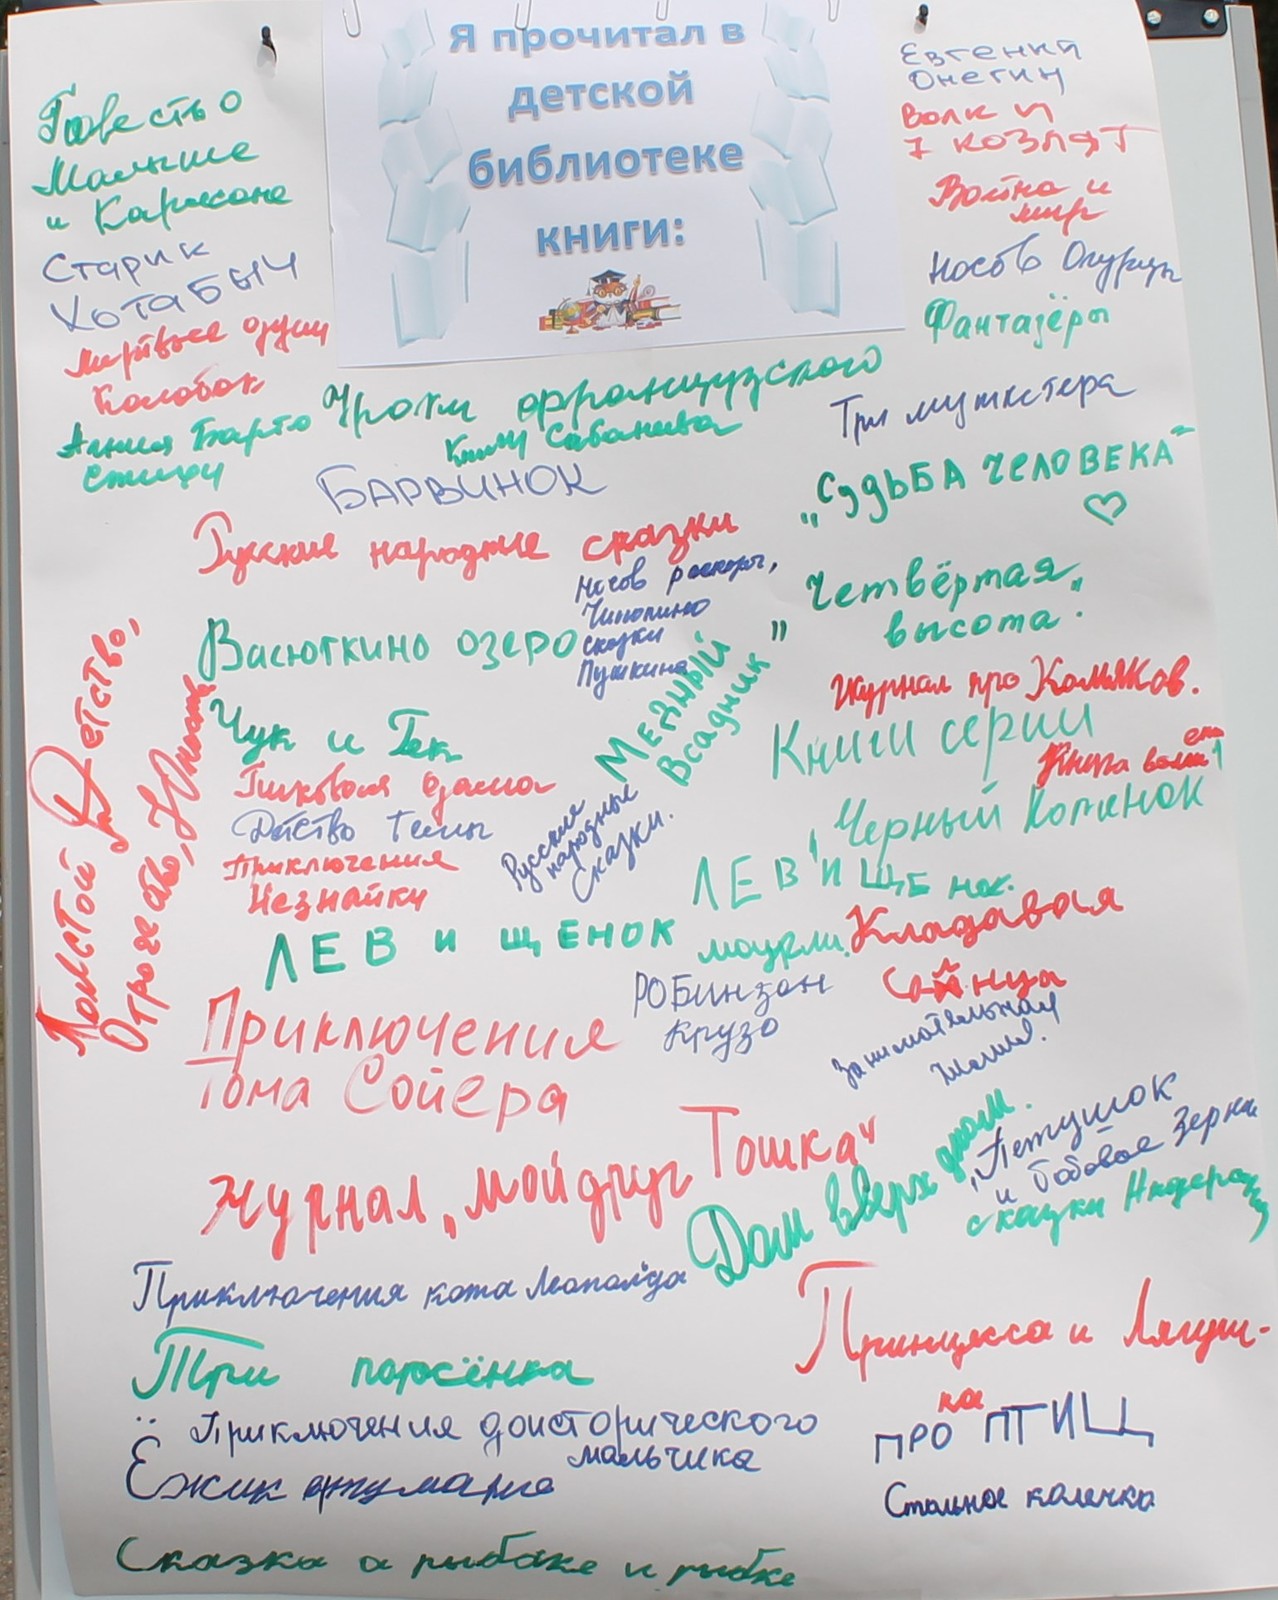 Я прочитал в
детской
библиотеке
книги:
Повесть о
Малыше
и Карлсоне
Старик
Хотабыч
Мёртвые души
Колобок
Агния Барто
стихи
Евгений
Онегин
Волк и
7 козлят
Война и
мир
Носов Огурцы
Фантазёры
Уроки французского
Книги Сабанеева
Три мушкетёра
БАРВИНОК
„СУДЬБА ЧЕЛОВЕКА"
Русские народные сказки
Носов рассказы,
Чиполино
сказки
Пушкина
„Четвёртая
высота".
Васюткино озеро
Толстой Детство,
Отрочество, Юность
Журнал про Хомяков.
Медный
Всадник"
Чук и Гек
Книги серии
Черный Котенок
Книга
Пиковая дама
Детство Тёмы
Приключения
Незнайки
Русские
народные
Сказки.
ЛЕВ И ЩЕНОК.
ЛЕВ и ЩЕНОК
маугли
Кладовая
Солнца
РОБИНЗОН
Крузо
Приключения
Тома Сойера
Занимательная
Журнал „Мой друг Тошка"
Дом вверх дном.
„Петушок
и бобовое Зерно
сказки Андерсона
Приключения кота Леопольда
Принцесса и Лягуш-
ка
Три поросёнка
Приключения доисторического
мальчика
Ёжик в тумане
ПРО ПТИЦ
Стальное колечко
Сказка о рыбаке и рыбке